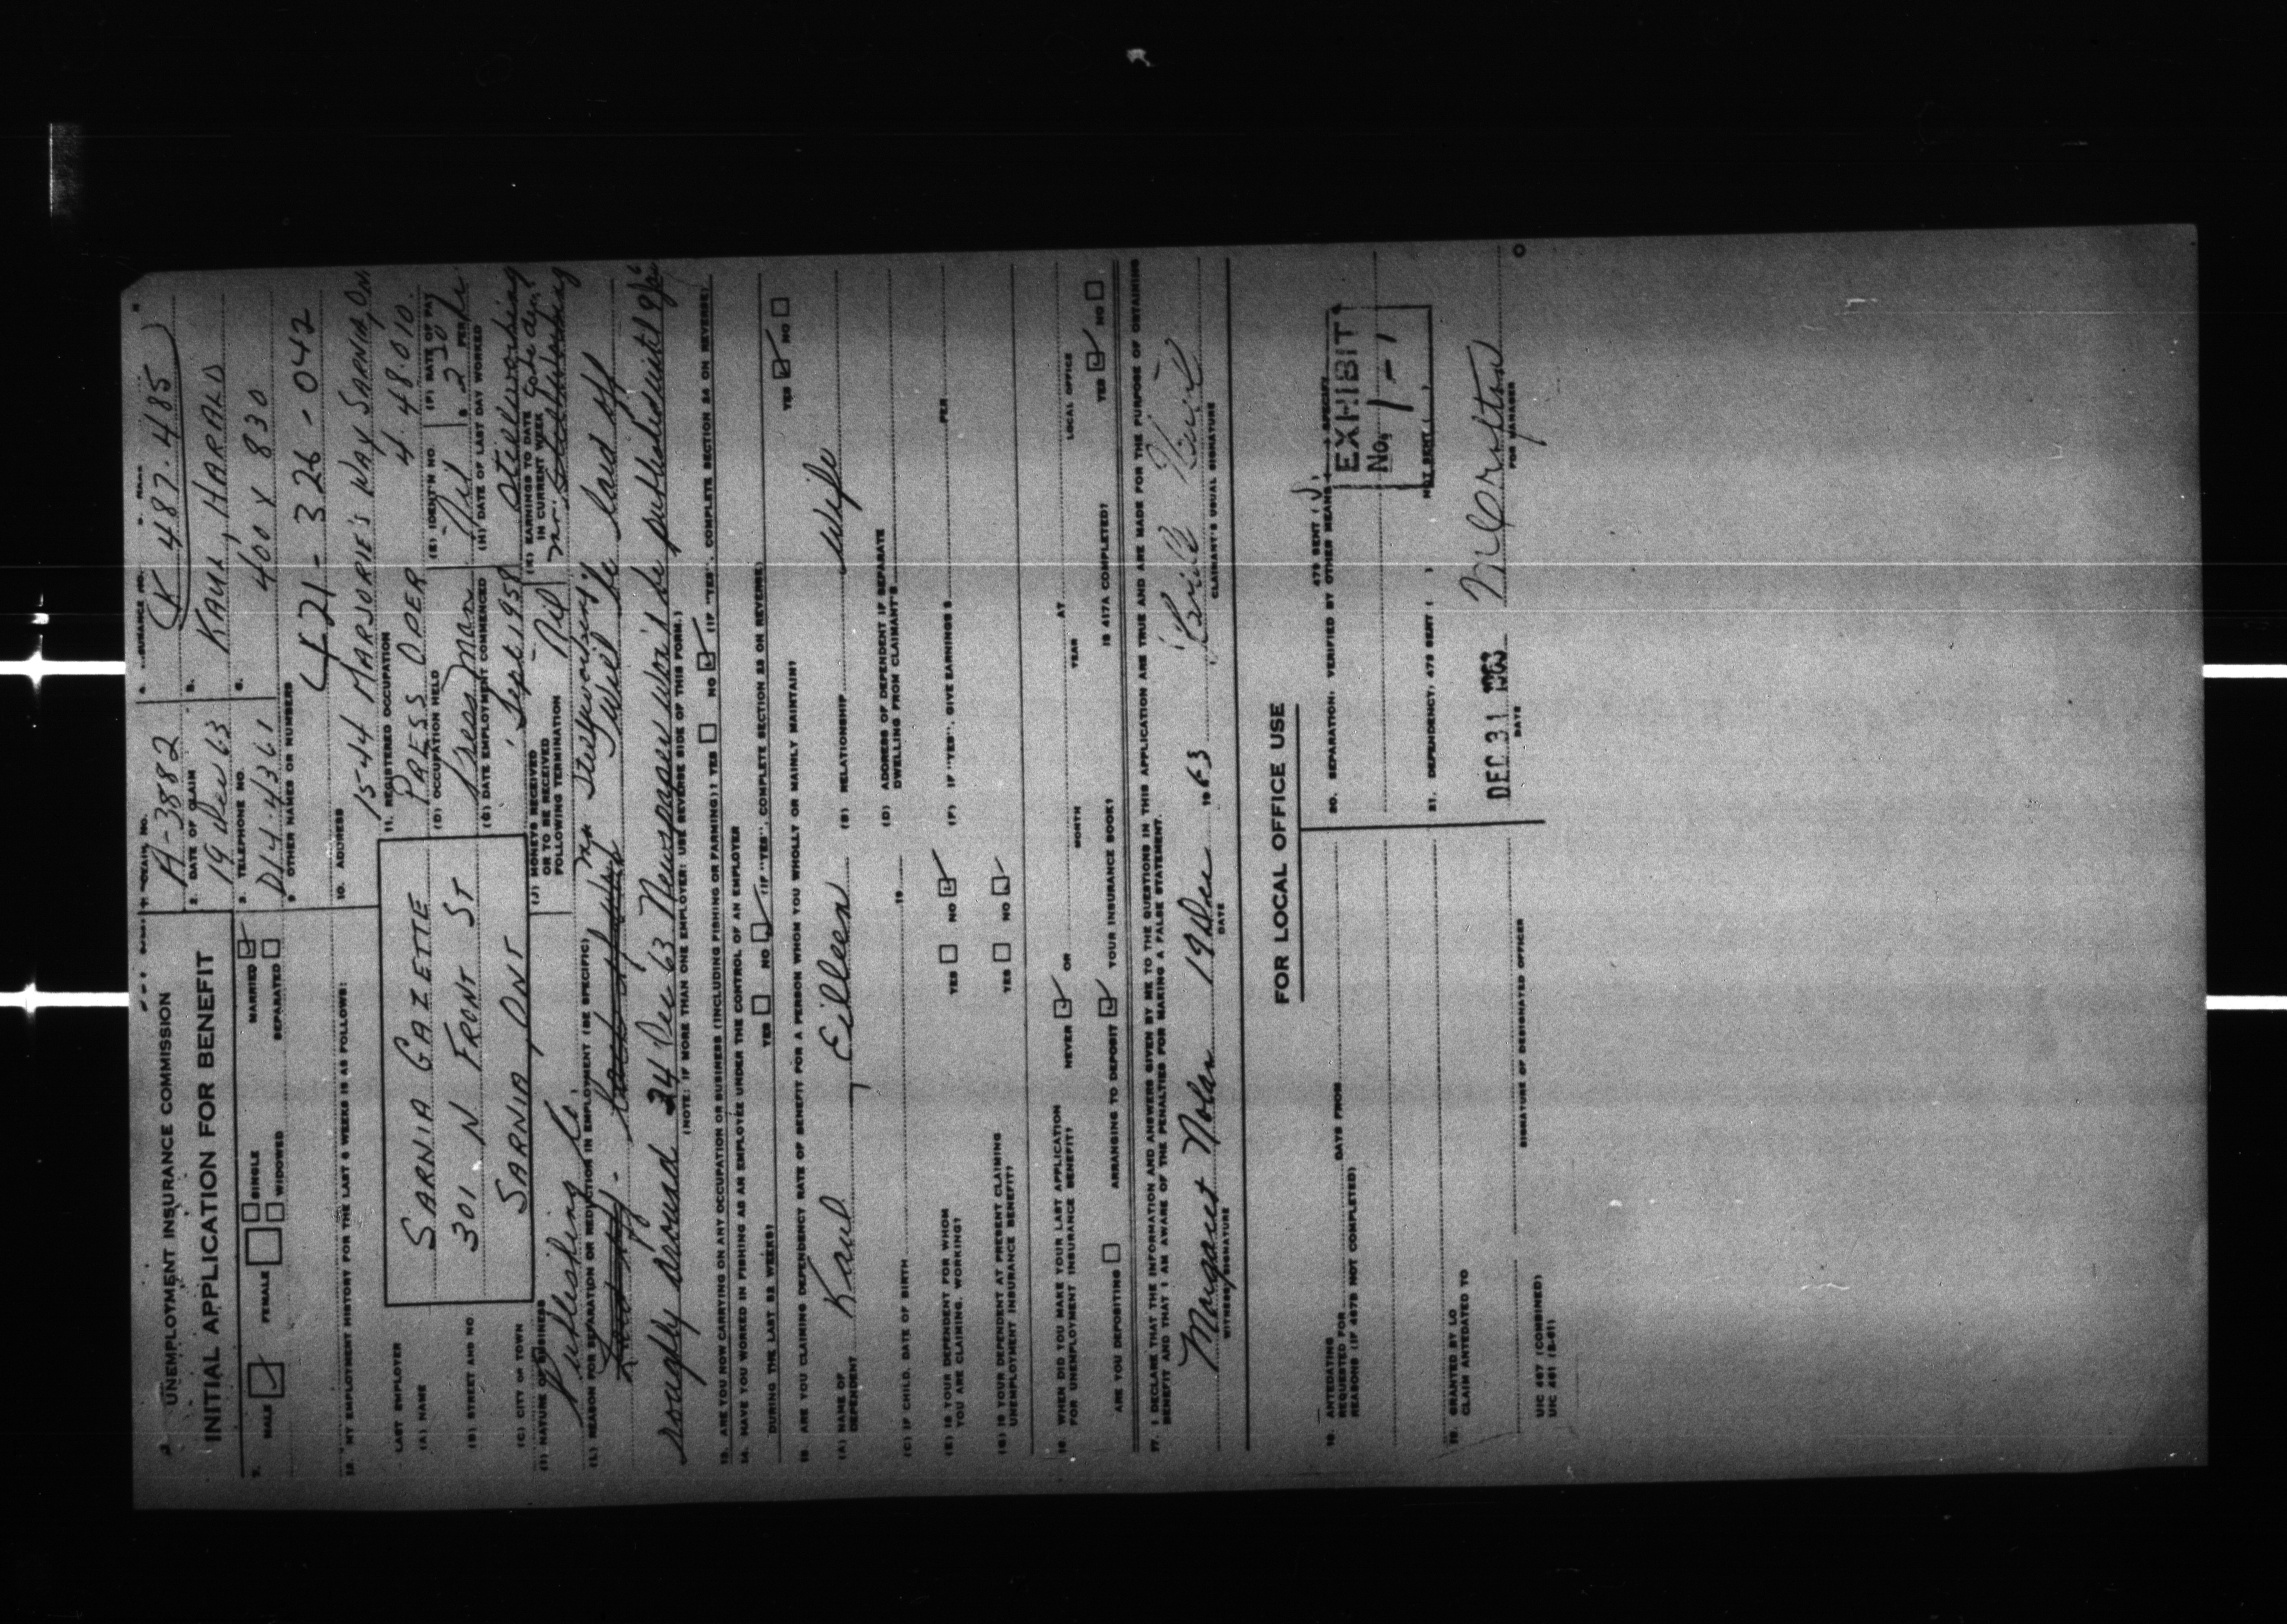 UNEMPLOYMENT INSURANCE COMMISSION
INITIAL APPLICATION FOR BENEFIT
A-3882
K 487.485
2. DATE OF CLAIM
19 Dec 63
KAUL, HARALD
3. TELEPHONE NO.
DI4.4361
400 Y 830
7. MALE FEMALE SINGLE MARRIED
WIDOWED SEPARATED
9 OTHER NAMES OR NUMBERS
421-326-042
10. ADDRESS
1544 MARJORIE'S WAY SARNIA, Ont
12. MY EMPLOYMENT HISTORY FOR THE LAST 6 WEEKS IS AS FOLLOWS:
11. REGISTERED OCCUPATION
PRESS OPER 4.48.010.
LAST EMPLOYER
(A) NAME
SARNIA GAZETTE
(D) OCCUPATION HELD
Press Man
(E) IDENT'N NO.
Nil
(F) RATE OF PAY
$ 2.30 PER hr
(B) STREET AND NO
301 N FRONT ST
(G) DATE EMPLOYMENT COMMENCED
Sept 1958
(H) DATE OF LAST DAY WORKED
still working
(C) CITY OR TOWN
SARNIA, ONT
(I) NATURE OF BUSINESS
Publishing Co.
(J) MONEYS RECEIVED
OR TO BE RECEIVED
FOLLOWING TERMINATION
Nil
(K) EARNINGS TO DATE
IN CURRENT WEEK
(L) REASON FOR SEPARATION OR REDUCTION IN EMPLOYMENT (BE SPECIFIC)
Still working
I will be laid off
roughly around 24 Dec 63 Newspaper won't be published until
(NOTE: IF MORE THAN ONE EMPLOYER: USE REVERSE SIDE OF THIS FORM.)
13. ARE YOU NOW CARRYING ON ANY OCCUPATION OR BUSINESS (INCLUDING FISHING OR FARMING)? YES NO (IF "YES", COMPLETE SECTION 24 ON REVERSE)
14. HAVE YOU WORKED IN FISHING AS AN EMPLOYEE UNDER THE CONTROL OF AN EMPLOYER
DURING THE LAST 52 WEEKS? YES NO (IF "YES", COMPLETE SECTION 23 ON REVERSE)
15 ARE YOU CLAIMING DEPENDENCY RATE OF BENEFIT FOR A PERSON WHOM YOU WHOLLY OR MAINLY MAINTAIN? YES NO
(A) NAME OF
DEPENDENT Kaul, Eilleen (B) RELATIONSHIP wife
(C) IF CHILD, DATE OF BIRTH 19
(D) ADDRESS OF DEPENDENT IF SEPARATE
DWELLING FROM CLAIMANT'S
(E) IS YOUR DEPENDENT FOR WHOM
YOU ARE CLAIMING, WORKING? YES NO (F) IF "YES", GIVE EARNINGS $ PER
(G) IS YOUR DEPENDENT AT PRESENT CLAIMING
UNEMPLOYMENT INSURANCE BENEFIT? YES NO
16 WHEN DID YOU MAKE YOUR LAST APPLICATION
FOR UNEMPLOYMENT INSURANCE BENEFIT? NEVER OR MONTH YEAR AT LOCAL OFFICE
ARE YOU DEPOSITING ARRANGING TO DEPOSIT YOUR INSURANCE BOOK? IS 417A COMPLETED? YES NO
17. I DECLARE THAT THE INFORMATION AND ANSWERS GIVEN BY ME TO THE QUESTIONS IN THIS APPLICATION ARE TRUE AND ARE MADE FOR THE PURPOSE OF OBTAINING
BENEFIT AND THAT I AM AWARE OF THE PENALTIES FOR MAKING A FALSE STATEMENT.
Margaret Nolan 19 Dec 1963
WITNESS SIGNATURE DATE CLAIMANT'S USUAL SIGNATURE
FOR LOCAL OFFICE USE
18. ANTEDATING
REQUESTED FOR DAYS FROM
REASONS (IF 467B NOT COMPLETED)
20. SEPARATION: VERIFIED BY OTHER MEANS SPECIFY
479 SENT
EXHIBIT
No. 1-1
21. DEPENDENCY: 479 SENT ( ) NOT SENT ( )
19. GRANTED BY LO
CLAIM ANTEDATED TO
SIGNATURE OF DESIGNATED OFFICER
DEC 31 1963
DATE FOR MANAGER
UIC 467 (COMBINED)
UIC 461 (5-61)